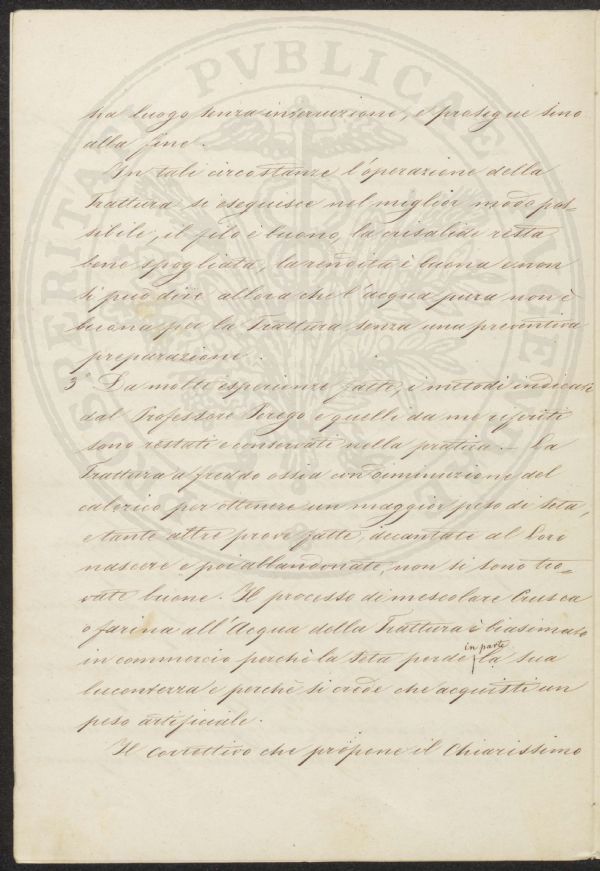 ha luogo senza interruzione, e prosegue sino
alla fine.
In tali circostanze l'operazione della
Trattura si eseguisce nel miglior modo pos=
sibile, il filo è buono, la crisalide resta
bene spogliata, la rendita è buona e non
si può dire allora che l'acqua pura non è
buona per la Trattura senza una preventiva
preparazione.
3° Da molte esperienze fatte, i metodi indicati
dal Professore Perego e quelli da me riferiti
sono restati e conservati nella pratica. — La
Trattura a freddo ossia con diminuzione del
calorico per ottenere un maggior peso di seta,
e tante altre prove fatte, decantate al Loro
nascere e poi abbandonate, non si sono tro=
vate buone. Il processo di mescolare Crusca
o farina all'Acqua della Trattura è biasimato
in commercio perchè la seta perde in parte la sua
lucentezza e perchè si crede che acquisti un
peso artificiale.
Il Correttivo che propone il Chiarissimo
PROSPERITATI PVBLICAE